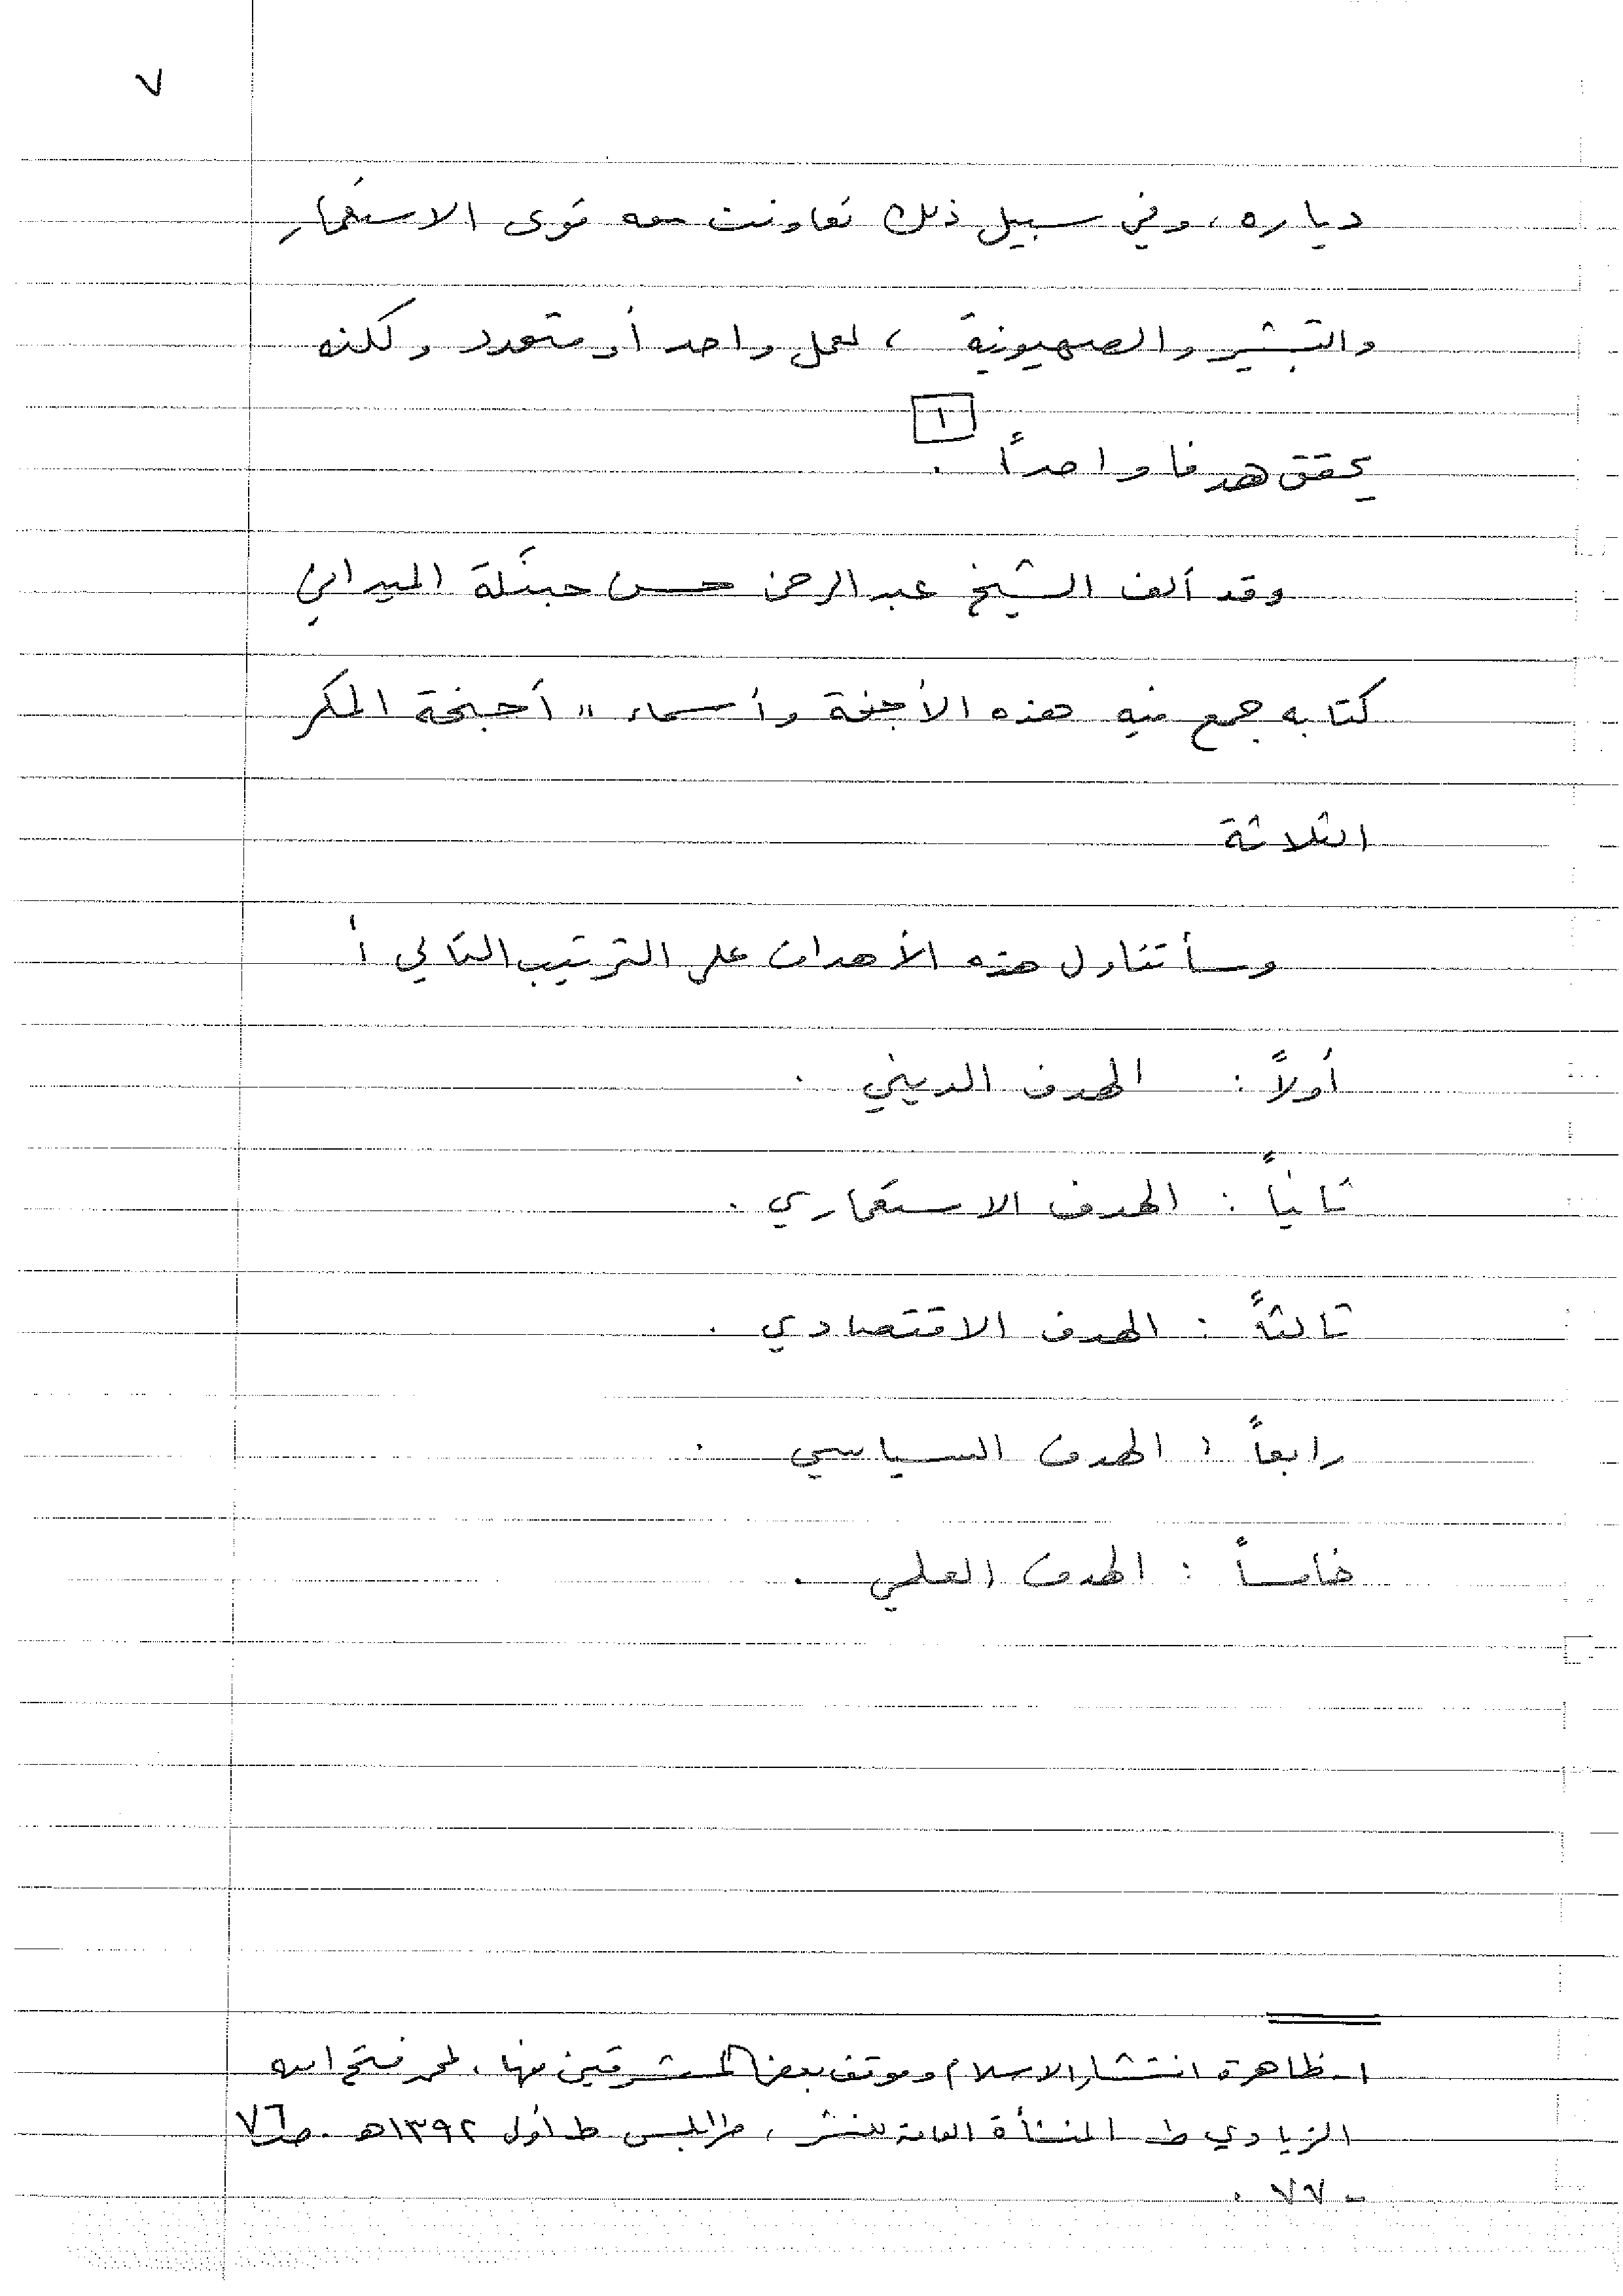 ٧
دياره، وفي سبيل ذلك تعاونت معه قوى الاستعمار
والتبشير والصهيونية، لعمل واحد أو متعدد ولكنه
١
يحقق هدفا واحداً .
وقد ألف الشيخ عبدالرحمن حسن حبنكة الميداني
كتابه جمع فيه هذه الأجنحة وأسماه " أجنحة المكر
الثلاثة
وسأتناول هذه الأهداف على الترتيب التالي :
أولاً : الهدف الديني .
ثانياً : الهدف الاستعماري .
ثالثاً : الهدف الاقتصادي .
رابعاً : الهدف السياسي .
خامساً : الهدف العلمي .
١- ظاهرة انتشار الاسلام وموقف بعض المستشرقين منها، لمحمد فتح الله
الزيادي ط المنشأة العامة للنشر، طرابلس ط أولى ١٣٩٢هـ . ص٧٦
- ٧٧ .